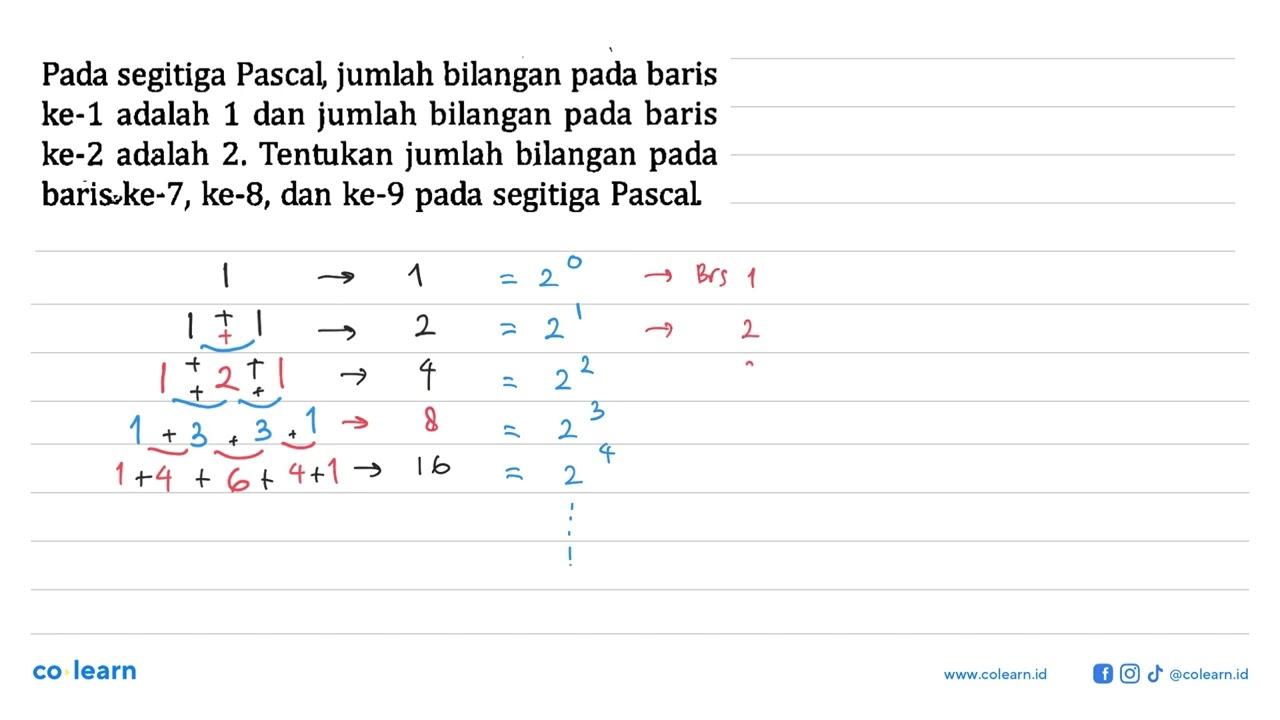 Pada segitiga Pascal, jumlah bilangan pada baris
ke-1 adalah 1 dan jumlah bilangan pada baris
ke-2 adalah 2. Tentukan jumlah bilangan pada
baris ke-7, ke-8, dan ke-9 pada segitiga Pascal.
1 → 1 = 2^0 → Brs 1
1 + 1 → 2 = 2^1 → 2
1 + 2 + 1 → 4 = 2^2
1 + 3 + 3 + 1 → 8 = 2^3
1 + 4 + 6 + 4 + 1 → 16 = 2^4
co learn
www.colearn.id
@colearn.id